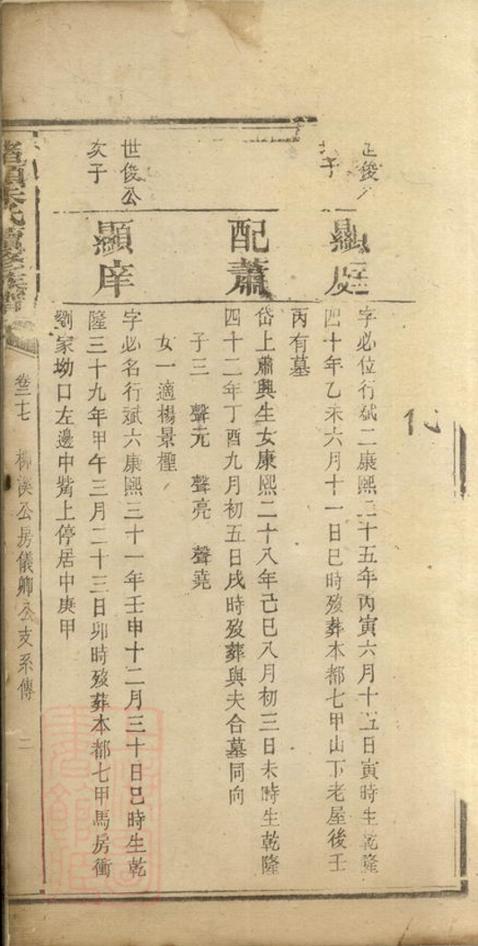 顯庭
字必位行斌二康熙二十五年丙寅六月十五日寅時生乾隆
四十年乙未六月十一日巳時歿葬本都七甲山下老屋後壬
丙有墓
配蕭
岱上蕭興生女康熙二十八年己巳八月初三日未時生乾隆
四十二年丁酉九月初五日戌時歿葬與夫合墓同向
子三 聲元 聲亮 聲堯
女一適楊景檉
世俊公
次子
顯庠
字必名行斌六康熙三十一年壬申十二月三十日巳時生乾
隆三十九年甲午三月二十三日卯時歿葬本都七甲馬房衝
劉家坳口左邊中嘴上停居中庚甲
卷二七 柳溪公房儀卿公支系傳 二